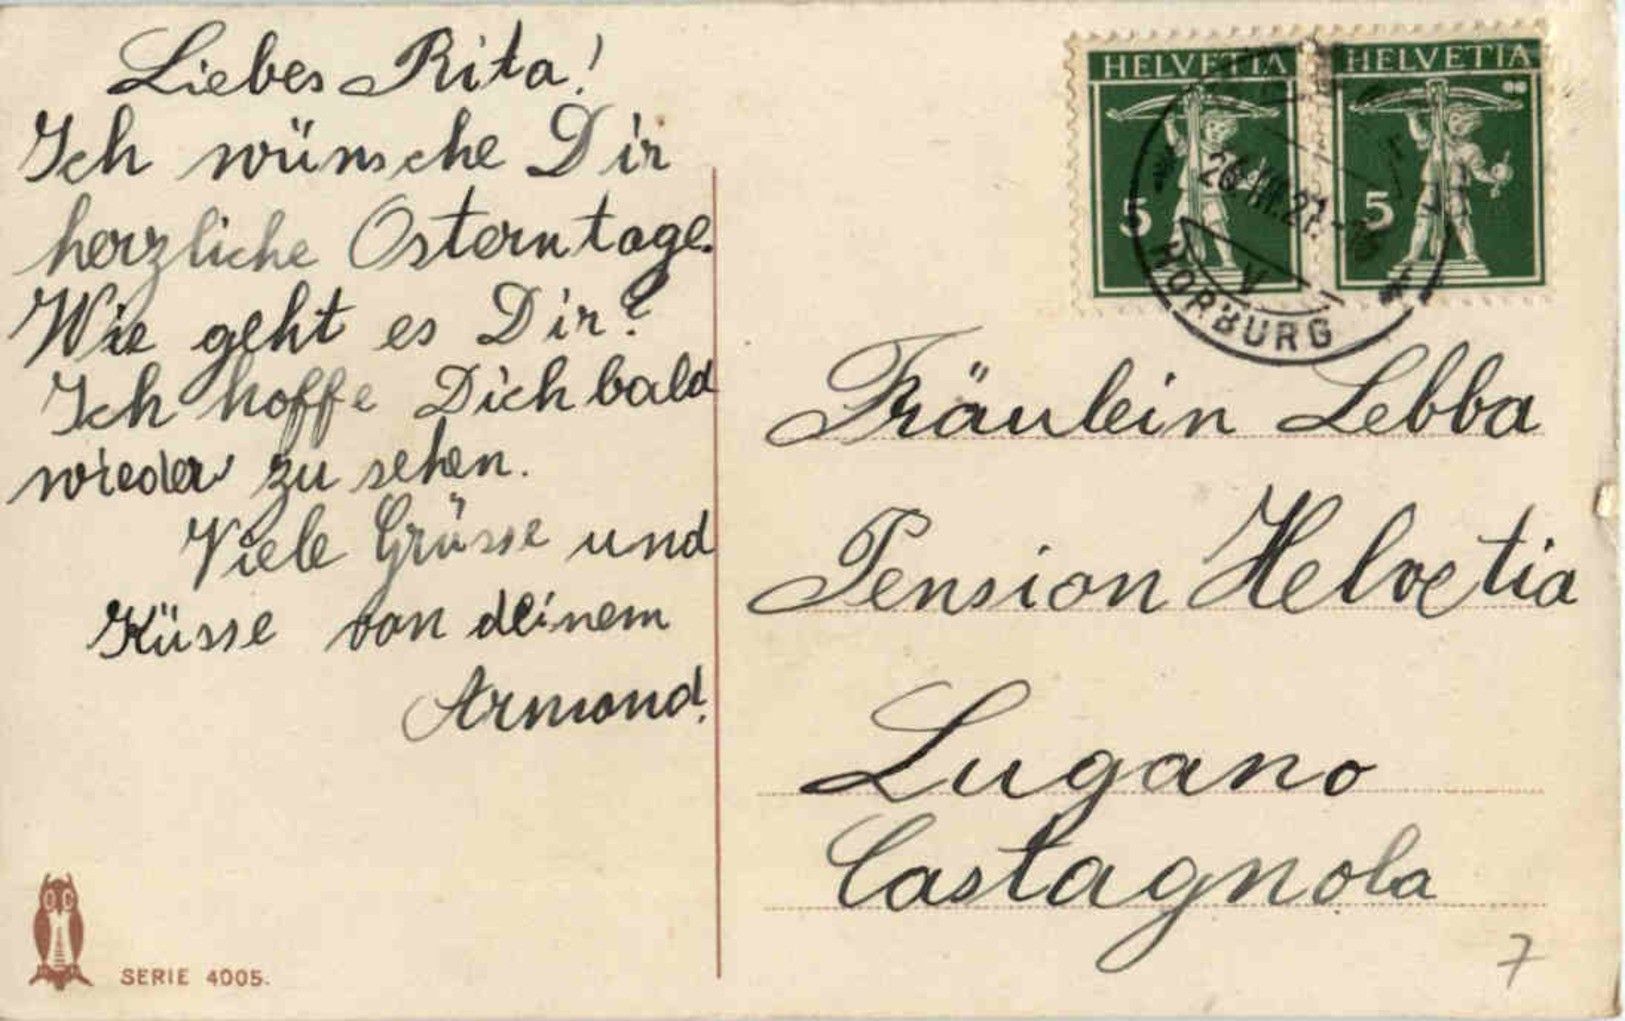 Liebes Rita!
Ich wünsche Dir
herzliche Osterntage.
Wie geht es Dir?
Ich hoffe Dich bald
wieder zu sehen.
Viele Grüsse und
Küsse von deinem
Armand.
SERIE 4005.
HELVETIA
5
HELVETIA
5
HORBURG
Fräulein Lebba
Pension Helvetia
Lugano
Castagnola
7